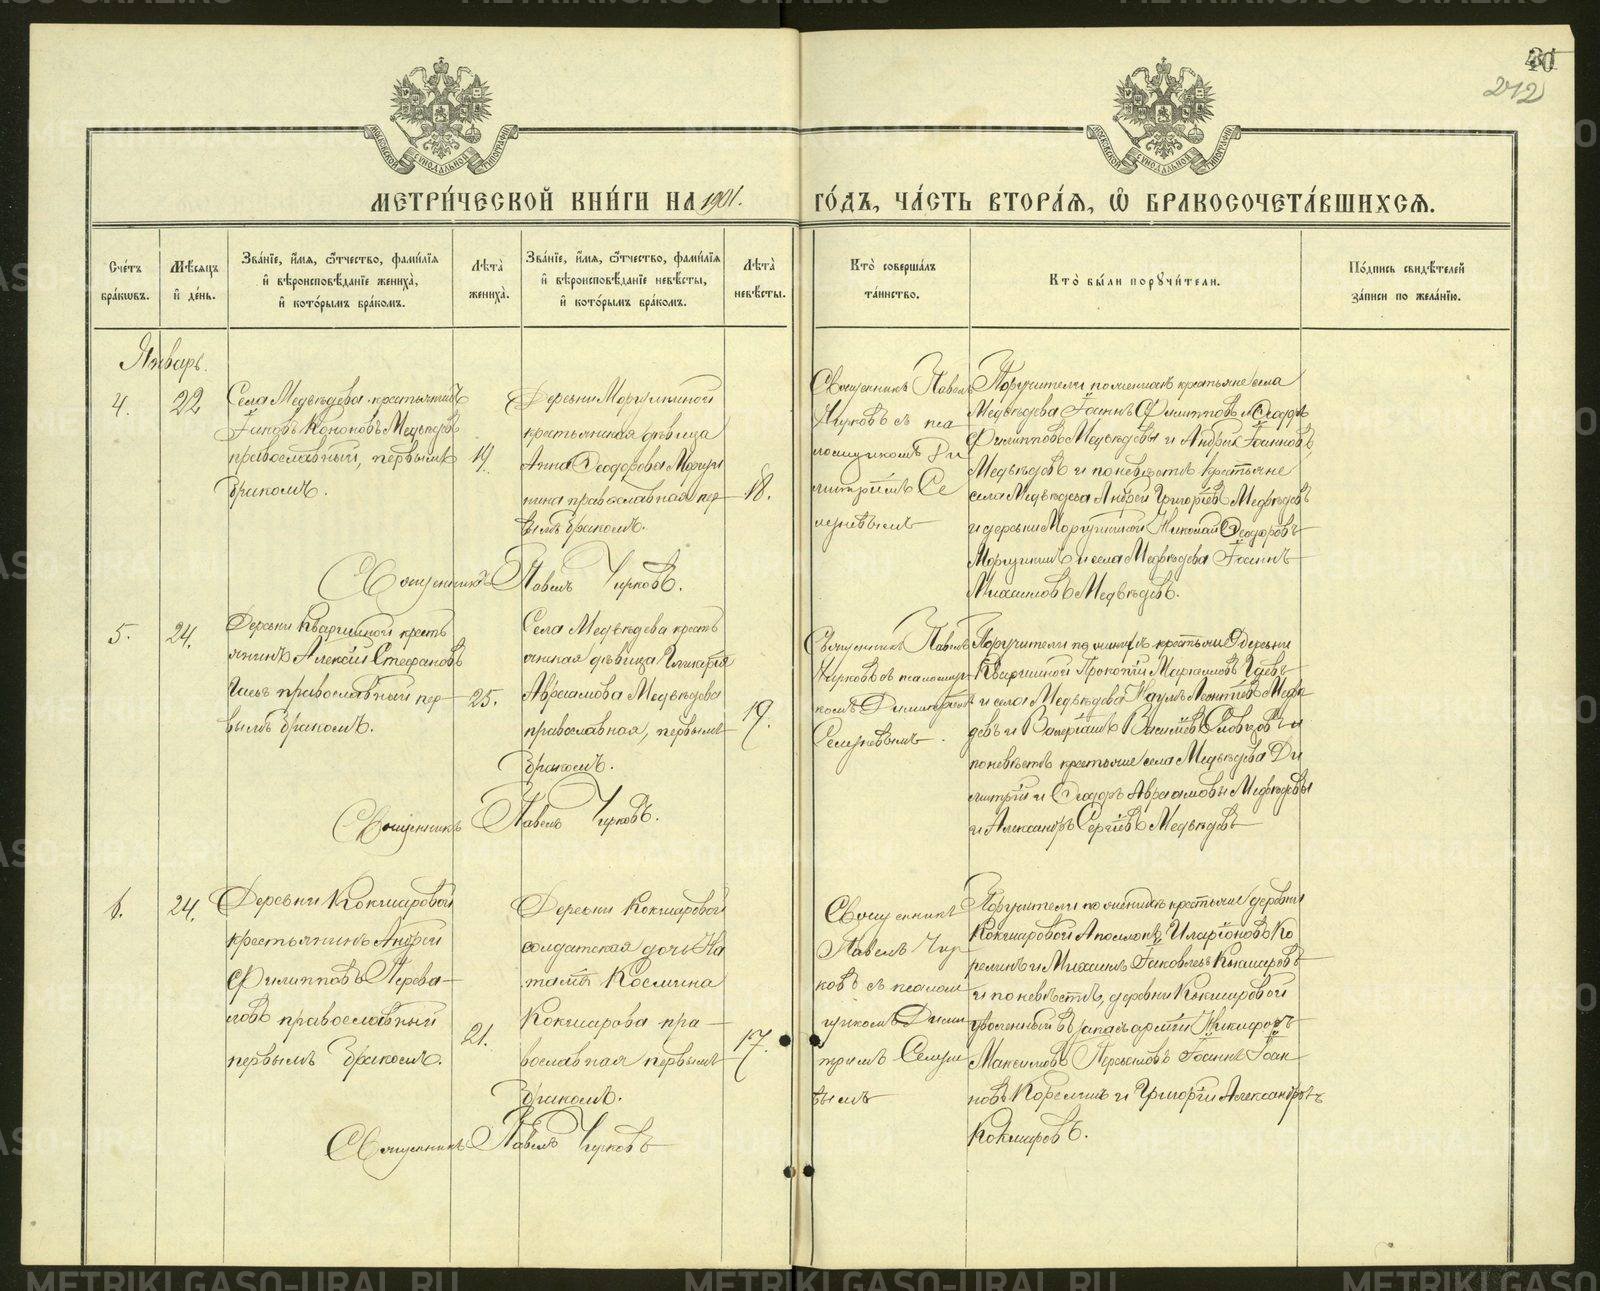 40
242
МЕТРИ́ЧЕСКОЙ КНИ́ГИ НА 1901. ГО́ДЪ, ЧА́СТЬ ВТОРА́Я, Ѿ БРАКОСОЧЕТА́ВШИХСЯ.
Сче́тъ бра́ковъ.
Мѣ́сяцъ и̂ де́нь.
Зва́нїе, и́мя, ѻ́тчество, фами́лїя
и̂ вѣроисповѣ́данїе жениха̀,
и̂ кото́рымъ бра́комъ.
Лѣта̀ жениха̀.
Зва́нїе, и́мя, ѻ́тчество, фами́лїя
и̂ вѣроисповѣ́данїе невѣ́сты,
и̂ кото́рымъ бра́комъ.
Лѣта̀ невѣ́сты.
Кто̀ соверша́лъ
та́инство.
Кто̀ бы́ли порꙋчи́тели.
По́дпись свидѣ́телей
за́писи по жела́нїю.
Январь.
4.
22
Села Медвѣдева крестьянинъ
Іаковъ Кононовъ Медвѣдевъ
православный, первымъ
бракомъ.
19.
Деревни Моргуниной
крестьянская дѣвица
Анна Ѳеодорова Моргу
нина православная пер
вымъ бракомъ.
18.
Священникъ Павелъ
Чирковъ съ пса
ломщикомъ Ди
митріемъ Се
лезневымъ
Поручители по женихѣ крестьяне села
Медвѣдева Іоаннъ Филипповъ и Ѳеодоръ
Филипповъ Медвѣдевы и Андрей Іоанновъ
Медвѣдевъ и по невѣстѣ крестьяне
села Медвѣдева Андрей Григорьевъ Медвѣдевъ
и деревни Моргуниной Николай Ѳеодоровъ
Моргунинъ и села Медвѣдева Іоаннъ
Михаиловъ Медвѣдевъ.
Священникъ Павелъ Чирковъ.
5.
24.
Деревни Квашниной кресть
янинъ Алексѣй Стефановъ
православный пер
вымъ бракомъ.
25.
Села Медвѣдева кресть
янская дѣвица Гликерія
Авраамова Медвѣдева
православная, первымъ
бракомъ.
19.
Священникъ Павелъ
Чирковъ съ псаломщи
комъ Димитріемъ
Селезневымъ.
Поручители по женихѣ крестьяне деревни
и села Медвѣдева Наумъ Леонтьевъ Медвѣ
девъ и Валеріанъ Васильевъ и
по невѣстѣ крестьяне села Медвѣдева Ди
митрій и Ѳеодоръ Авраамовы Медвѣдевы
и Александръ Сергіевъ Медвѣдевъ
Священникъ Павелъ Чирковъ.
6.
24.
Деревни Кокшаровой
крестьянинъ Андрей
Филипповъ Перева
ловъ православный
первымъ бракомъ.
21.
Деревни Кокшаровой
солдатская дочь На
талія Космина
Кокшарова пра
вославная первымъ
бракомъ.
17.
Священникъ
Павелъ Чир
ковъ съ псалом
щикомъ Дими
тріемъ Селезне
вымъ
Поручители по женихѣ крестьяне деревни
Кокшаровой Аполлонъ Иларіоновъ Ко
релинъ и Михаилъ Іаковлевъ Кокшаровъ
и по невѣстѣ, деревни Кокшаровой
уволенный въ запасъ арміи Никифоръ
Максимовъ Іоаннъ Іоан
новъ Корелинъ и Григорій Александровъ
Кокшаровъ.
Священникъ Павелъ Чирковъ
METRIKI.GASO-URAL.RU